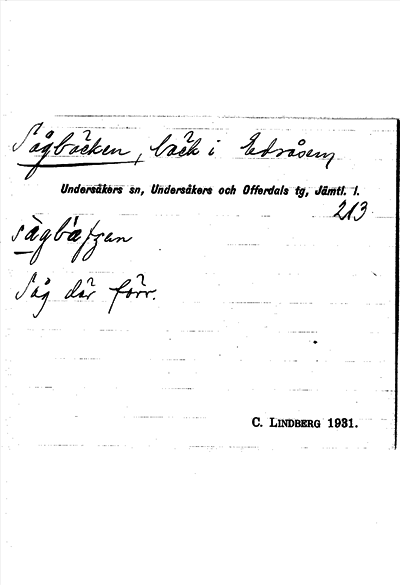 Sågbäcken, bäck i Edsåsen
Undersåkers sn, Undersåkers och Offerdals tg, Jämtl. l.
213
Såg där förr.
C. LINDBERG 1931.